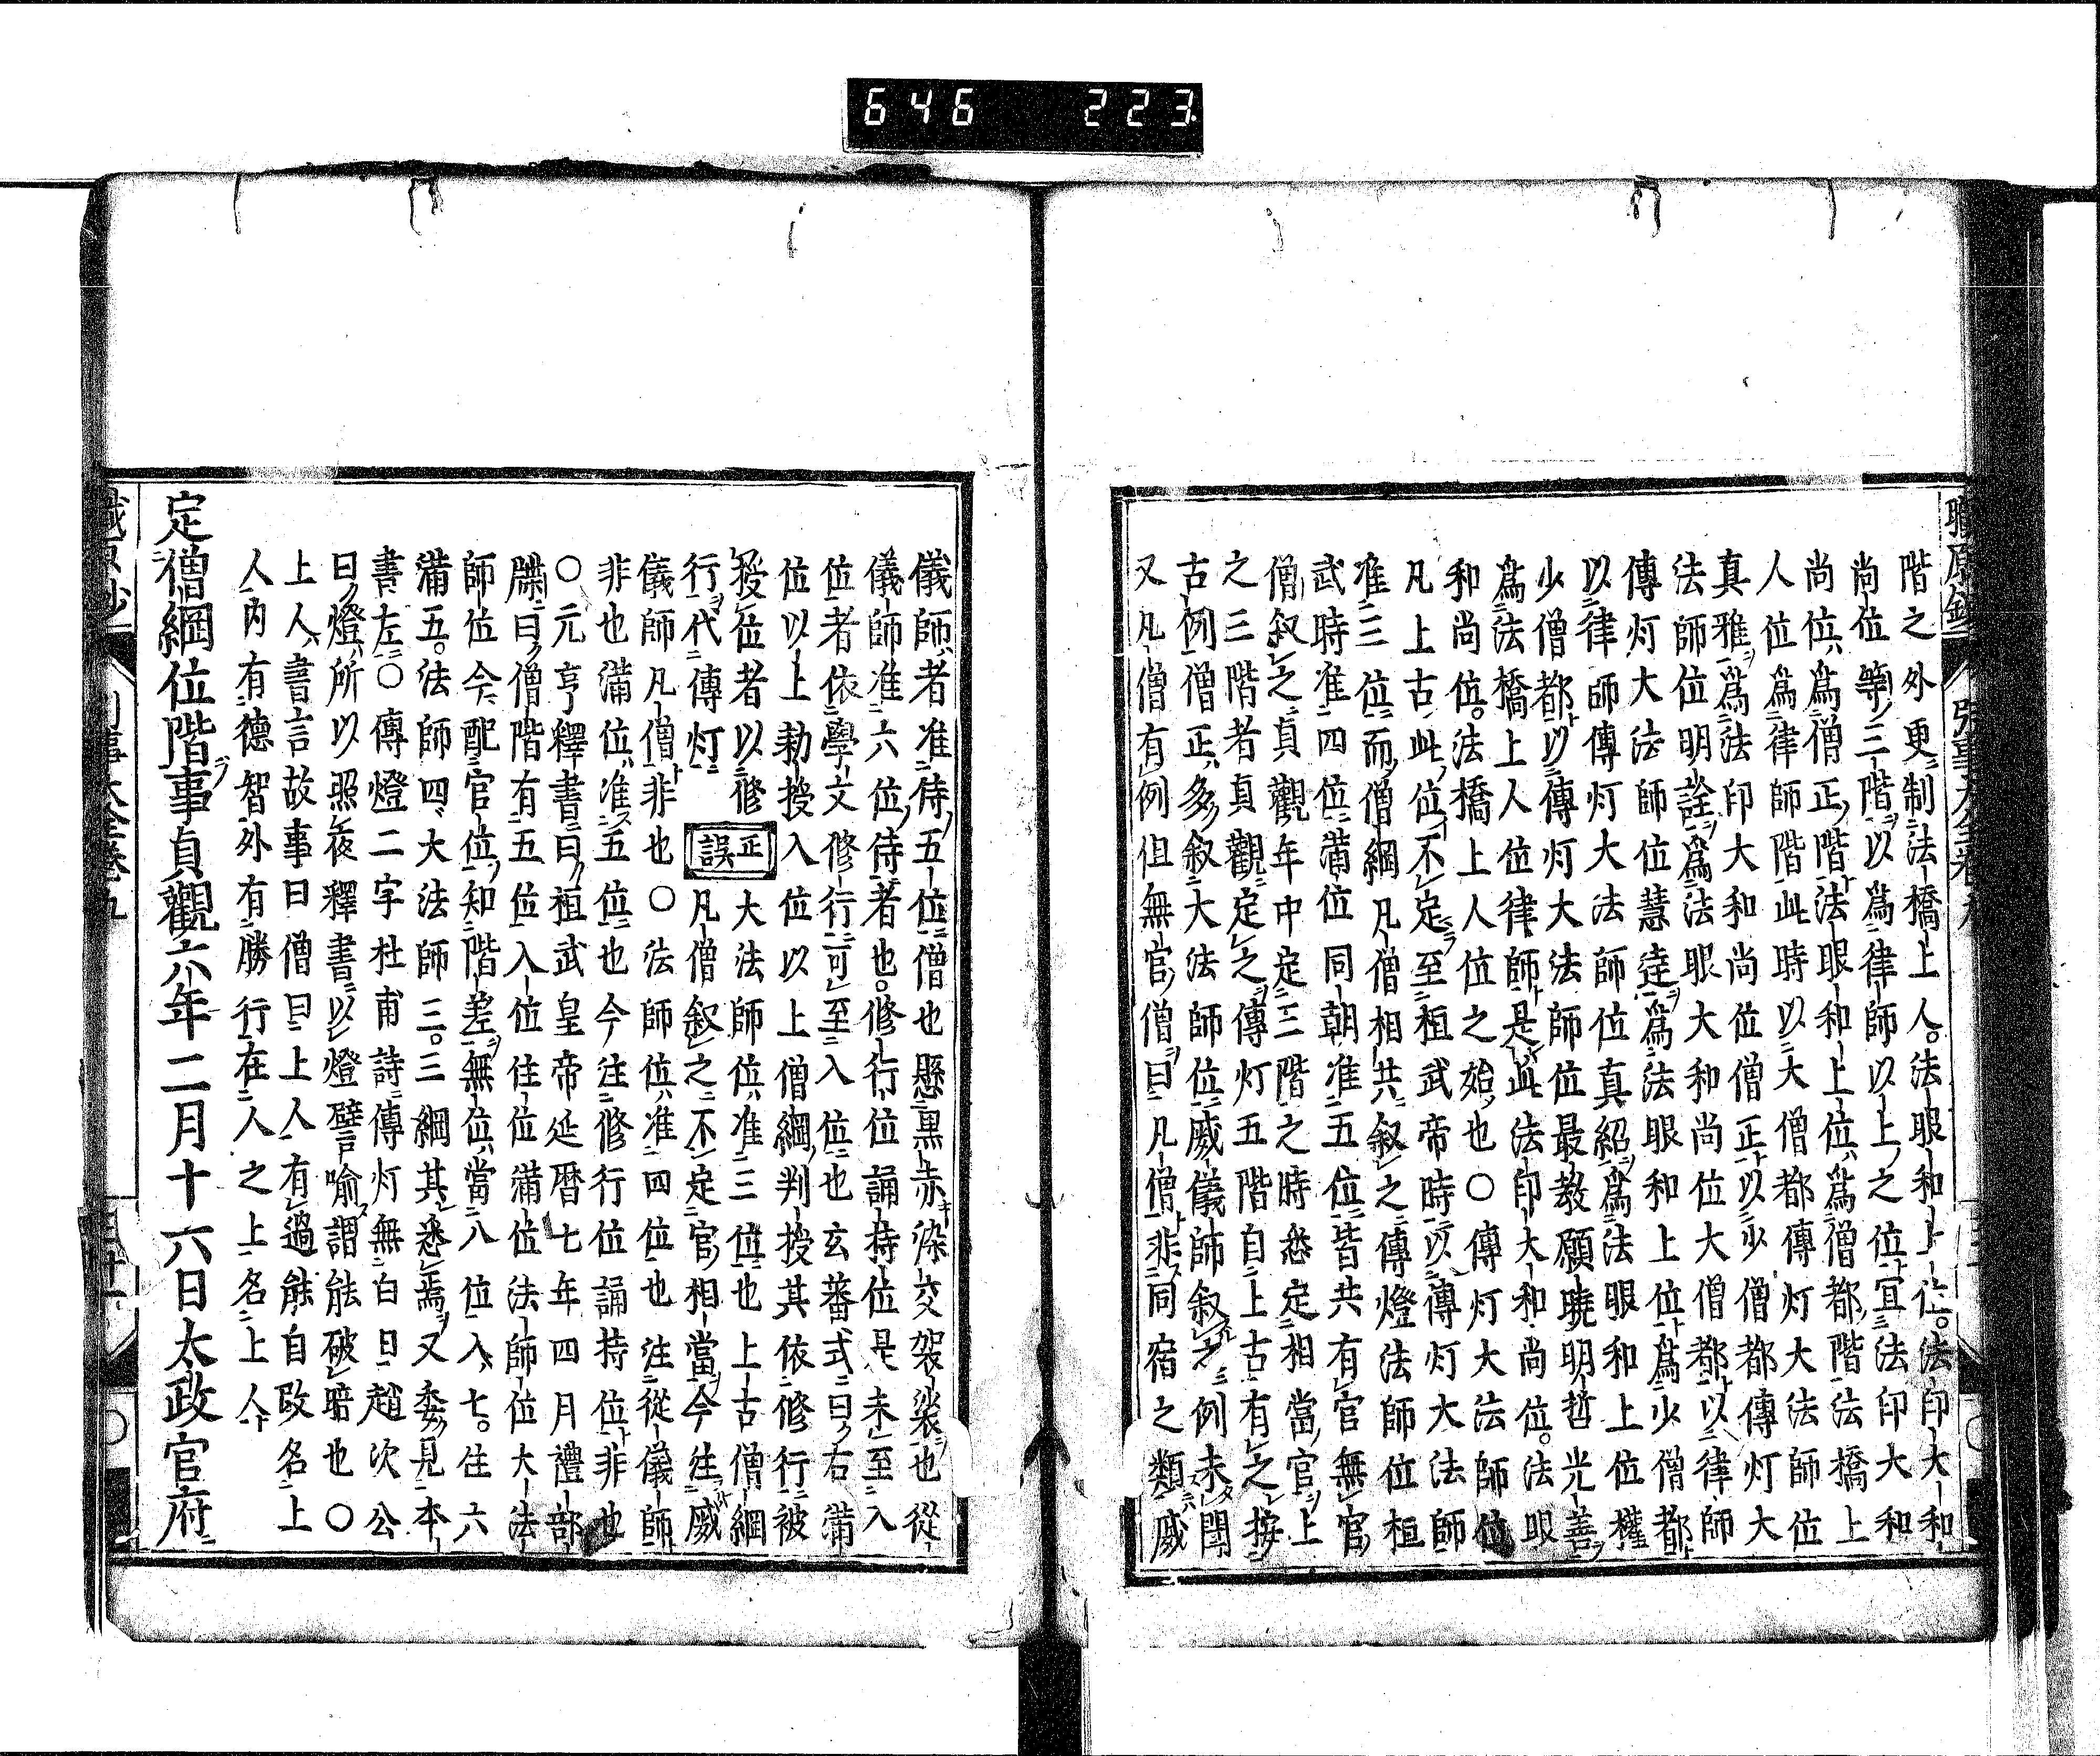 646 223
階之外更制法橋上人。法眼和上位。法印大和
尚位等三階以為律師以上之位宜法印大和
尚位為僧正階法眼和上位為僧都階法橋上
人位為律師階此時以大僧都傳灯大法師位
真雅為法印大和尚位僧正以少僧都傳灯大
法師位明詮為法眼大和尚位大僧都以律師
傳灯大法師位慧達為法眼和上位為少僧都
以律師傳灯大法師位真紹為法眼和上位權
少僧都以傳灯大法師位最教願曉明哲光善
為法橋上人位律師是此法印大和尚位。法眼
和尚位。法橋上人位之始也〇傳灯大法師位
凡上古此位不定至桓武帝時以傳灯大法師
准三位而僧綱凡僧相共叙之傳燈法師位桓
武時准四位滿位同朝准五位皆共有官無官
僧叙之貞觀年中定三階之時悉定相當官上
之三階者貞觀定之傳灯五階自上古有之按
古例僧正多叙大法師位威儀師叙之例未聞
又凡僧有例但無官僧曰凡僧非同宿之類威
儀師者准侍五位僧也懸黒赤染交袈裟也從
儀師准六位侍者也。修行位誦持位是未至入
位者依學文修行可至入位也玄蕃式曰右滿
位以上勅授入位以上僧綱判授其依修行被
授位者以修行代傳灯
正誤
大法師位准三位也上古僧綱
凡僧叙之不定官相當今注威
儀師凡僧非也〇法師位准四位也注從儀師
非也滿位准五位也今注修行位誦持位非也
〇元亨釋書曰桓武皇帝延暦七年四月禮部
牒曰僧階有五位入位住位滿位法師位大法
師位今配官位知階差無位當八位入七。住六
滿五。法師四大法師三。三綱其悉焉又委見本
書左〇傳燈二字杜甫詩傳灯無白日趙次公
曰燈所以照夜釋書以燈譬喻謂能破暗也〇
上人書言故事曰僧曰上人有過能自改名上
人内有德智外有勝行在人之上名上人
定僧綱位階事貞觀六年二月十六日太政官府